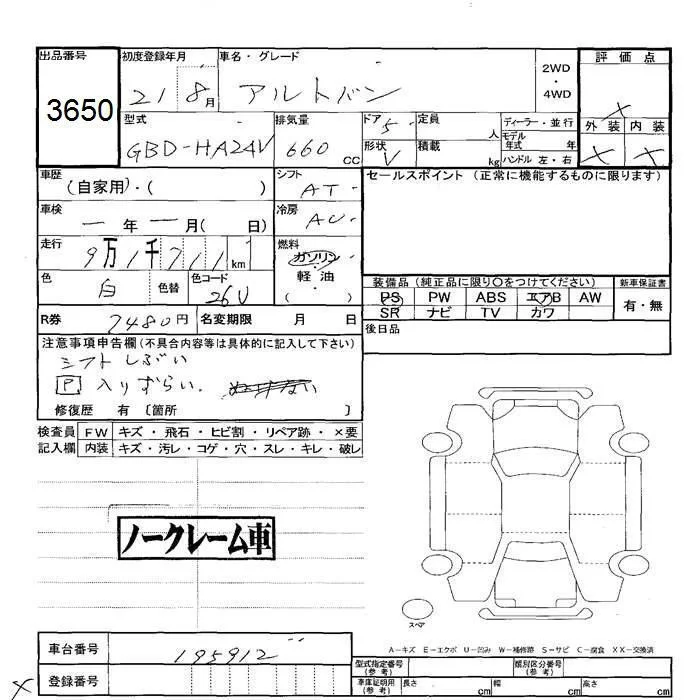 出品番号 初度登録年月 車名・グレード 2WD ・ 4WD 評価点
3650 21 8月 アルトバン ×
型式 排気量 ドア 5 定員 人 ディーラー・並行 外装 内装
GBD-HA24V 660CC 形状 V 積載 kg モデル年式 年 ハンドル 左・右 × ×
車歴 (自家用)・( ) シフト AT セールスポイント (正常に機能するものに限ります)
車検 一年一月( 日) 冷房 AC
走行 9万1千711km 燃料 ガソリン
色 白 色替 色コード 26U 軽油 ( )
装備品 (純正品に限り○をつけてください) 新車保証書
PS PW ABS エアB AW 有・無
SR ナビ TV カワ
R券 7480円 名変期限 月 日 後日品
注意事項申告欄 (不具合内容等は具体的に記入して下さい)
シフトしぶい
P 入りずらい.
修復歴 有 〔箇所 〕
検査員 FW キズ・飛石・ヒビ割・リペア跡・×要
記入欄 内装 キズ・汚レ・コゲ・穴・スレ・キレ・破レ
ノークレーム車
スペア
A－キズ E－エクボ U－凹み W－補修跡 S－サビ C－腐食 XX－交換済
車台番号 195912
登録番号
型式指定番号 (参考) 類別区分番号 (参考)
車庫証明用 (参考) 長さ cm 幅 cm 高さ cm
×